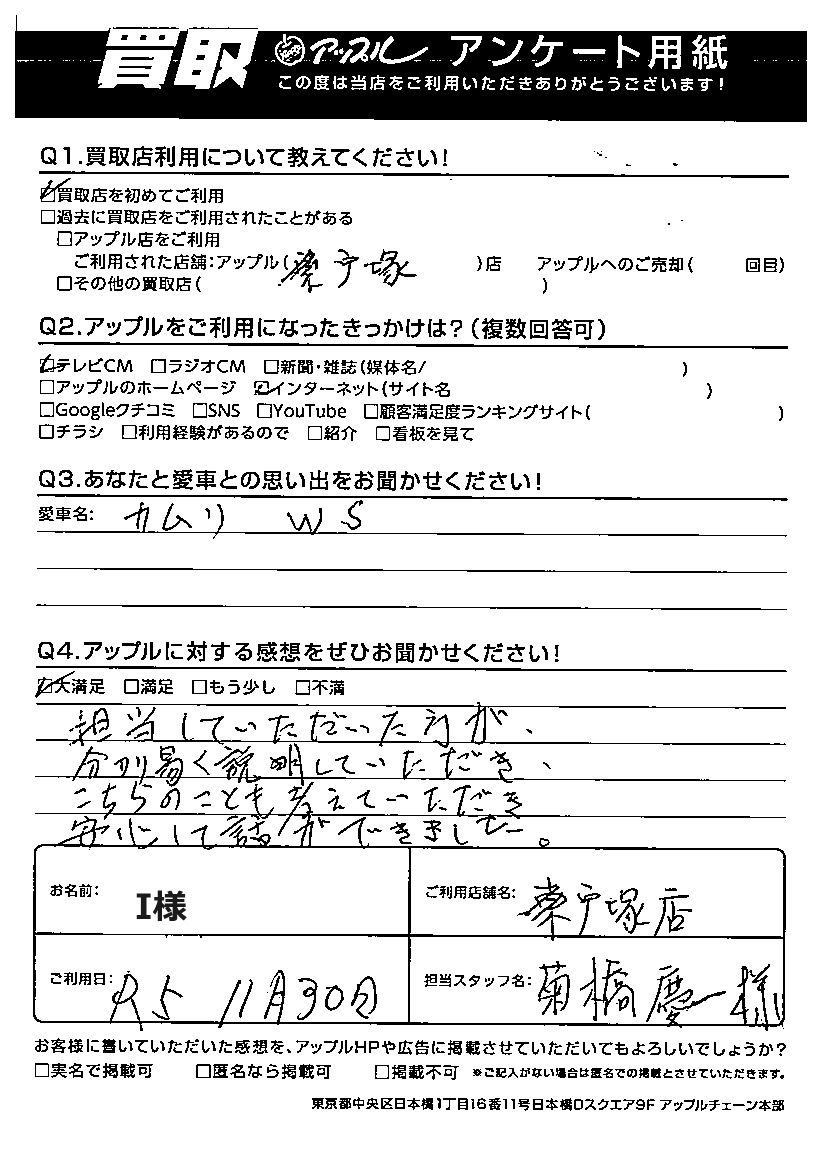 買取 アップル アンケート用紙
この度は当店をご利用いただきありがとうございます!
Q1.買取店利用について教えてください!
☑買取店を初めてご利用
□過去に買取店をご利用されたことがある
□アップル店をご利用
ご利用された店舗:アップル(東戸塚)店 アップルへのご売却( 回目)
□その他の買取店( )
Q2.アップルをご利用になったきっかけは?(複数回答可)
☑テレビCM □ラジオCM □新聞・雑誌(媒体名/ )
□アップルのホームページ ☑インターネット(サイト名 )
□Googleクチコミ □SNS □YouTube □顧客満足度ランキングサイト( )
□チラシ □利用経験があるので □紹介 □看板を見て
Q3.あなたと愛車との思い出をお聞かせください!
愛車名: カムリ WS
Q4.アップルに対する感想をぜひお聞かせください!
☑大満足 □満足 □もう少し □不満
担当していただいた方が、
分かり易く説明していただき、
こちらのことも考えていただき
安心して話ができました。
お名前: I様
ご利用店舗名: 東戸塚店
ご利用日: R5 11月30日
担当スタッフ名: 菊橋慶一様
お客様に書いていただいた感想を、アップルHPや広告に掲載させていただいてもよろしいでしょうか?
□実名で掲載可 □匿名なら掲載可 □掲載不可 ※ご記入がない場合は匿名での掲載とさせていただきます。
東京都中央区日本橋1丁目16番11号日本橋Dスクエア9F アップルチェーン本部